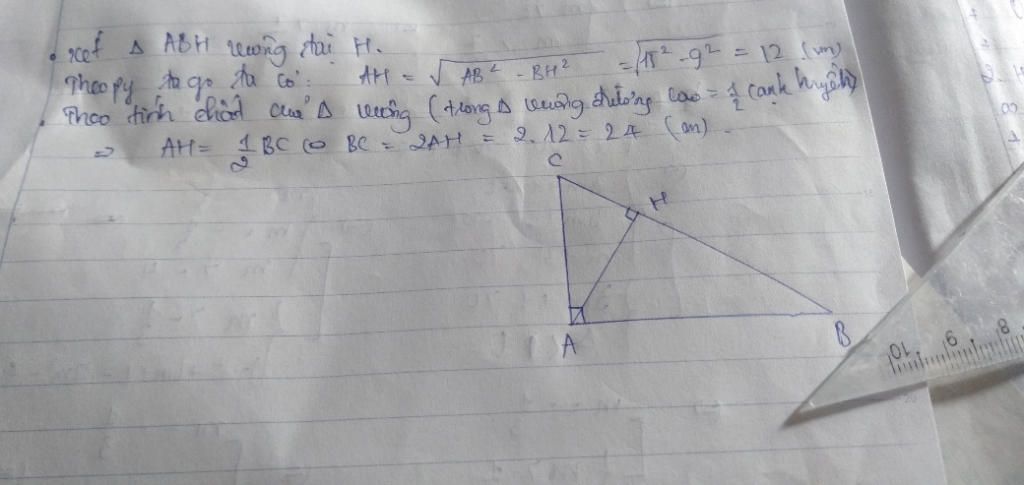 • xét Δ ABH vuông tại H.
Theo py ta go ta có: AH = √(AB² - BH²) = √(15² - 9²) = 12 (cm)
• Theo tính chất của Δ vuông (trong Δ vuông đường cao = 1/2 cạnh huyền)
=> AH = 1/2 BC <=> BC = 2AH = 2.12 = 24 (cm).
C
H
A
B
10 9 8